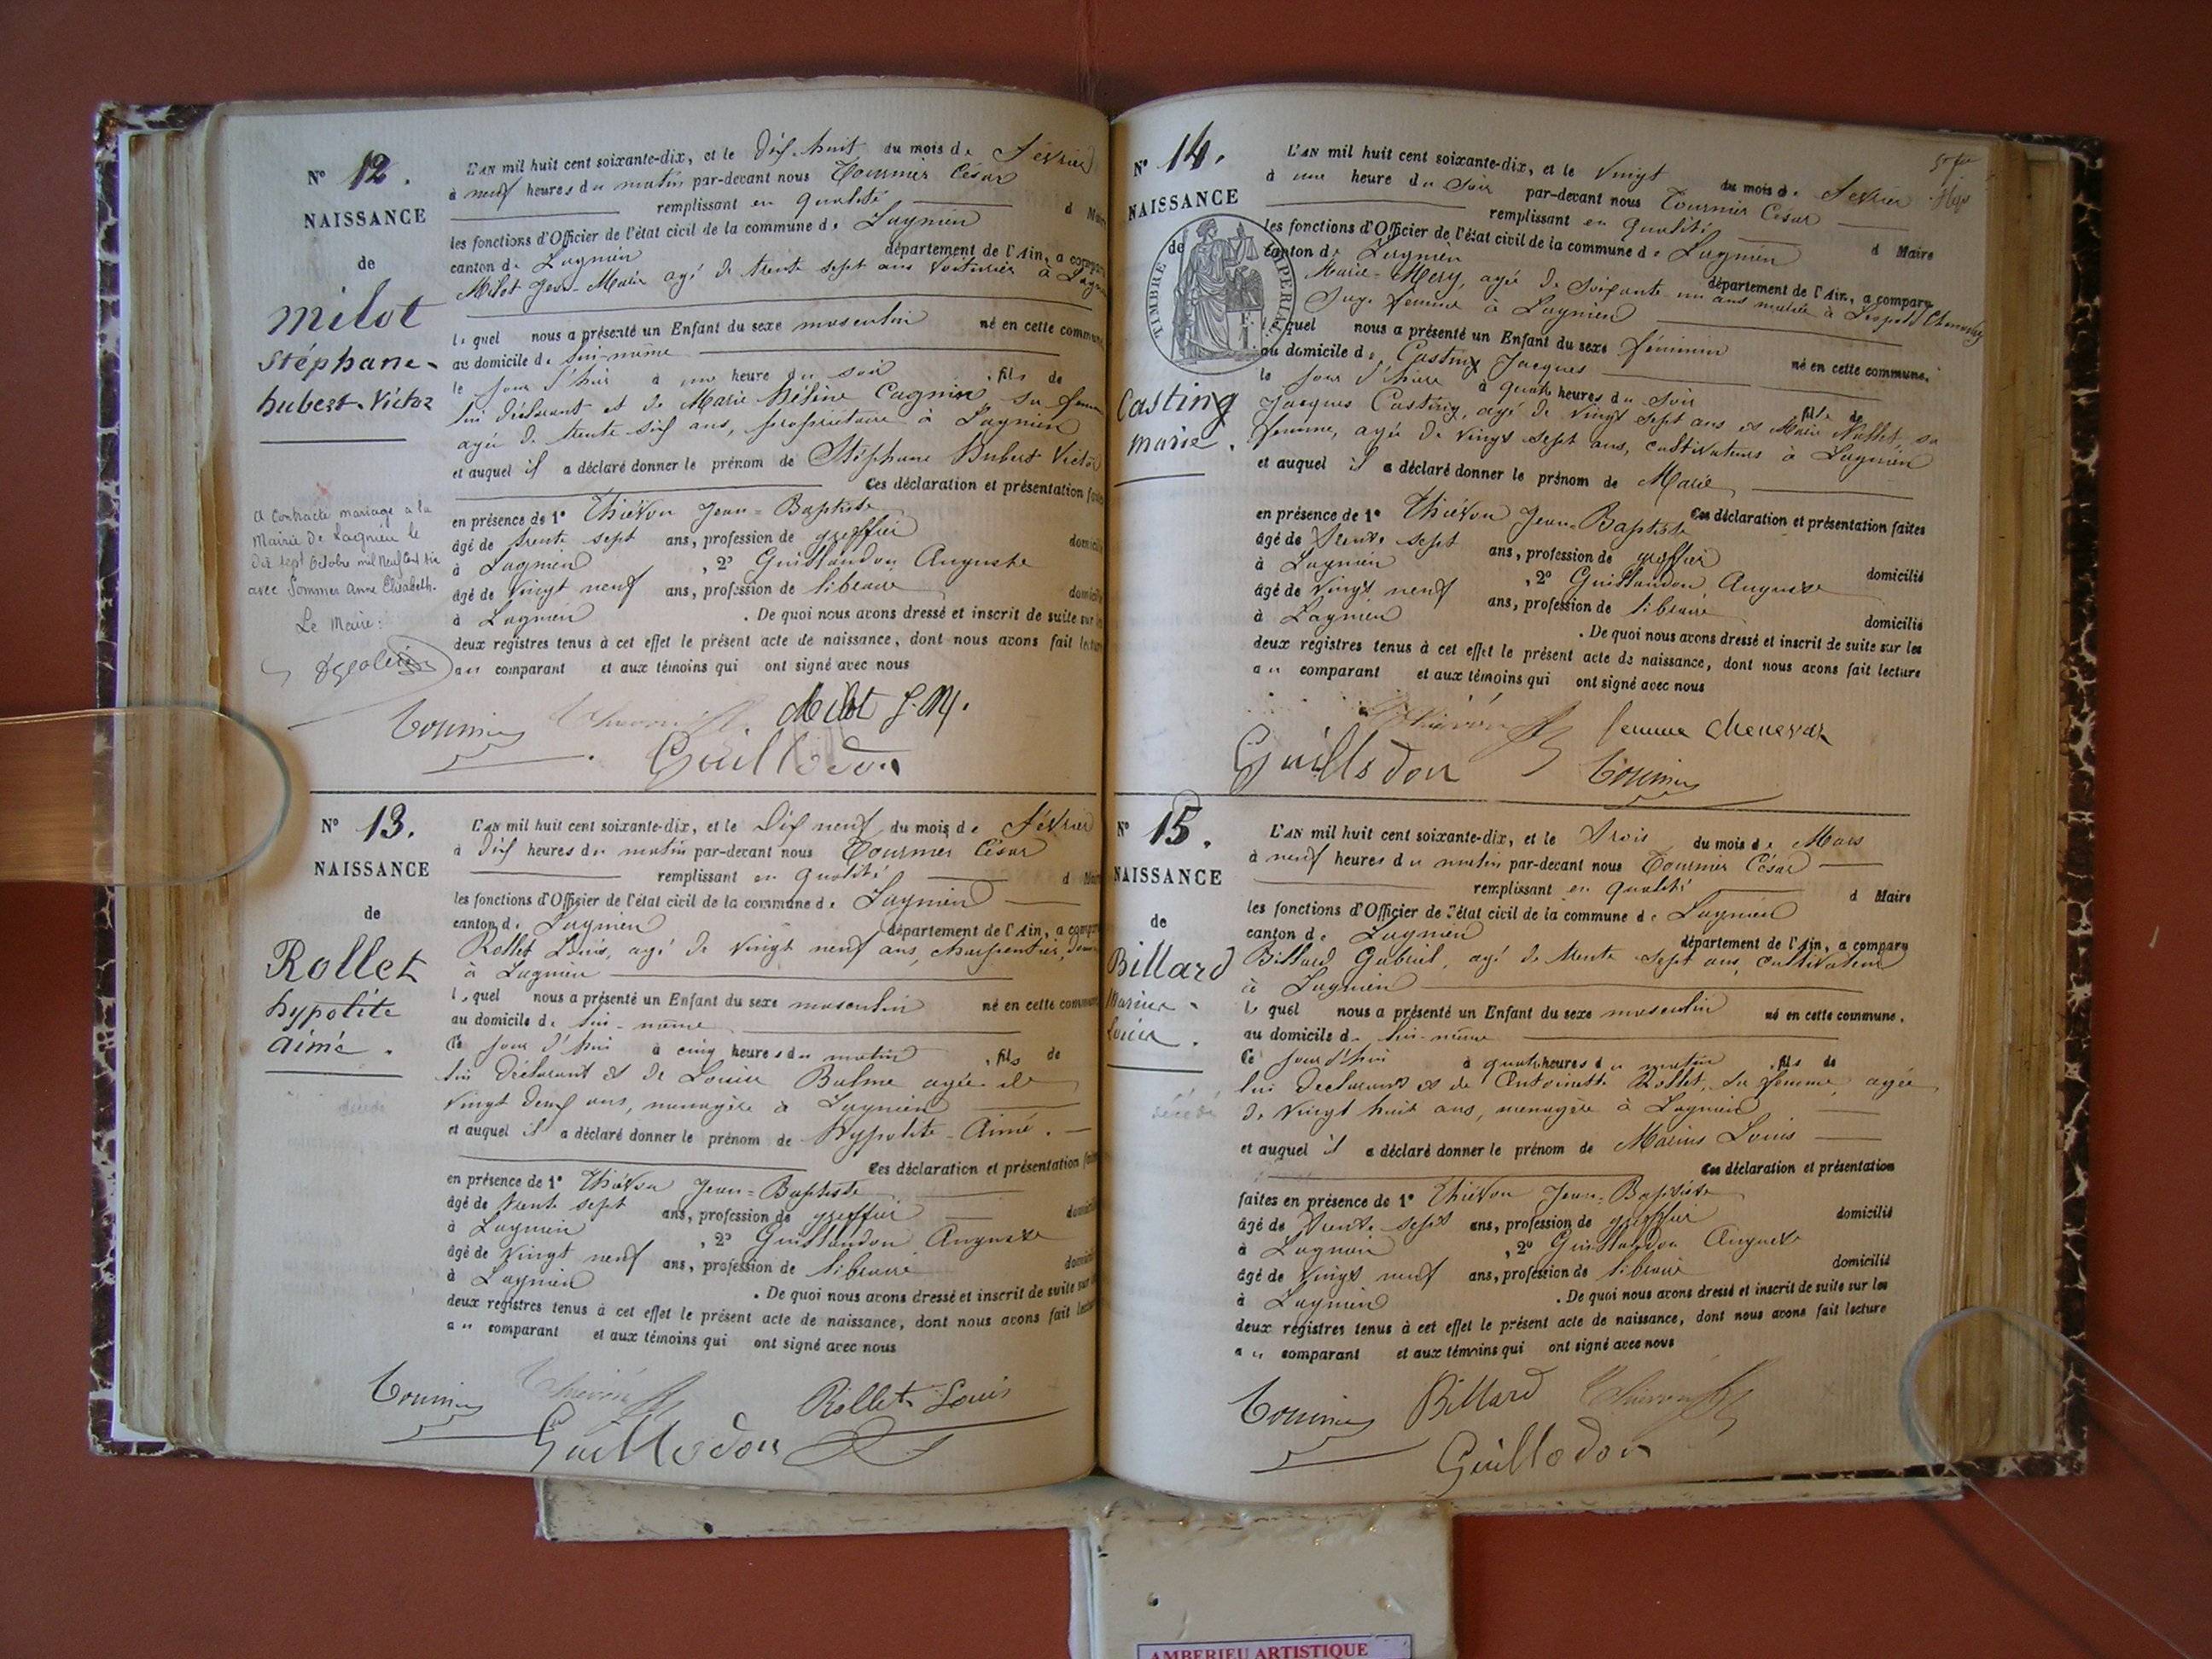 N° 12.
NAISSANCE
de
Milot
Stéphane-
hubert-Victor
A contracté mariage à la
Mairie de Lagnieu le
Dix sept Octobre mil neuf cent
avec Sommer Anne Elisabeth.
Le Maire:
L'AN mil huit cent soixante-dix, et le Dix huit du mois de Février
à neuf heures du matin par-devant nous Tournier César
remplissant en qualité d Maire
les fonctions d'Officier de l'état civil de la commune de Lagnieu
canton de Lagnieu département de l'Ain, a compar
Milot Jean-Marie agé de trente sept ans voiturier à Lagnieu
lequel nous a présenté un Enfant du sexe masculin né en cette commune
au domicile de lui-même
le jour d'hier à une heure du soir, fils de
lui déclarant et de Marie Hélène Cagnin sa femme
agée de trente six ans, propriétaire à Lagnieu
et auquel il a déclaré donner le prénom de Stéphane Hubert Victor
Ces déclaration et présentation faites
en présence de 1° Thiévon Jean-Baptiste
âgé de trente sept ans, profession de greffier domicilié
à Lagnieu , 2° Guillaudon Auguste
âgé de vingt neuf ans, profession de libraire domicilié
à Lagnieu . De quoi nous avons dressé et inscrit de suite sur les
deux registres tenus à cet effet le présent acte de naissance, dont nous avons fait lecture
au comparant et aux témoins qui ont signé avec nous
Tournier Thievon Milot J. M.
Guillodon
N° 13.
NAISSANCE
de
Rollet
hypolite
aimé.
décédé
L'AN mil huit cent soixante-dix, et le Dix neuf du mois de Février
à Dix heures du matin par-devant nous Tournier César
remplissant en qualité d Maire
les fonctions d'Officier de l'état civil de la commune de Lagnieu
canton de Lagnieu département de l'Ain, a compar
Rollet Louis, agé de vingt neuf ans, charpentier, dem
à Lagnieu
lequel nous a présenté un Enfant du sexe masculin né en cette commune
au domicile de lui-même
Ce jour d'hui à cinq heures du matin, fils de
lui déclarant et de Louise Balme agée de
vingt deux ans, menagère à Lagnieu
et auquel il a déclaré donner le prénom de Hypolite-Aimé.
Ces déclaration et présentation faites
en présence de 1° Thiévon Jean-Baptiste
âgé de trente sept ans, profession de greffier domicilié
à Lagnieu , 2° Guillaudon Auguste
âgé de vingt neuf ans, profession de libraire domicilié
à Lagnieu . De quoi nous avons dressé et inscrit de suite sur les
deux registres tenus à cet effet le présent acte de naissance, dont nous avons fait lecture
au comparant et aux témoins qui ont signé avec nous
Tournier Thievon Rollet Louis
Guillodon
N° 14.
NAISSANCE
de
TIMBRE IMPERIAL
Casting
marie.
L'AN mil huit cent soixante-dix, et le vingt du mois de Février
à une heure du soir par-devant nous Tournier César
remplissant en qualité d Maire
les fonctions d'Officier de l'état civil de la commune de Lagnieu
canton de Lagnieu département de l'Ain, a comparu
Marie-Mery, agée de soixante un ans mariée à Léopold Chenevay
Sage femme à Lagnieu
lequel nous a présenté un Enfant du sexe féminin né en cette commune.
au domicile de Casting Jacques
le jour d'hier à quatre heures du soir fille de
Jacques Casting, agé de vingt sept ans et Marie Nallet, sa
femme, agée de vingt sept ans, cultivateurs à Lagnieu
et auquel il a déclaré donner le prénom de Marie
Ces déclaration et présentation faites
en présence de 1° Thiévon Jean-Baptiste
âgé de trente sept ans, profession de greffier domicilié
à Lagnieu , 2° Guillaudon Auguste
âgé de vingt neuf ans, profession de libraire domicilié
à Lagnieu . De quoi nous avons dressé et inscrit de suite sur les
deux registres tenus à cet effet le présent acte de naissance, dont nous avons fait lecture
au comparant et aux témoins qui ont signé avec nous
Thievon femme Chenevaz
Guillodon Tournier
N° 15.
NAISSANCE
de
Billard
Marius-
Louis.
décédé
L'AN mil huit cent soixante-dix, et le Trois du mois de Mars
à neuf heures du matin par-devant nous Tournier César
remplissant en qualité d Maire
les fonctions d'Officier de l'état civil de la commune de Lagnieu
canton de Lagnieu département de l'Ain, a comparu
Billard Gabriel, agé de trente sept ans, cultivateur
à Lagnieu
lequel nous a présenté un Enfant du sexe masculin né en cette commune.
au domicile de lui-même
Ce jour d'hui à quatre heures du matin, fils de
lui déclarant et de Antoinette Rollet, sa femme, agée
de vingt huit ans, menagère à Lagnieu
et auquel il a déclaré donner le prénom de Marius Louis
Ces déclaration et présentation
faites en présence de 1° Thiévon Jean-Baptiste
âgé de trente sept ans, profession de greffier domicilié
à Lagnieu , 2° Guillaudon Auguste
âgé de vingt neuf ans, profession de libraire domicilié
à Lagnieu . De quoi nous avons dressé et inscrit de suite sur les
deux registres tenus à cet effet le présent acte de naissance, dont nous avons fait lecture
au comparant et aux témoins qui ont signé avec nous
Tournier Billard Thievon
Guillodon
AMBERIEU ARTISTIQUE